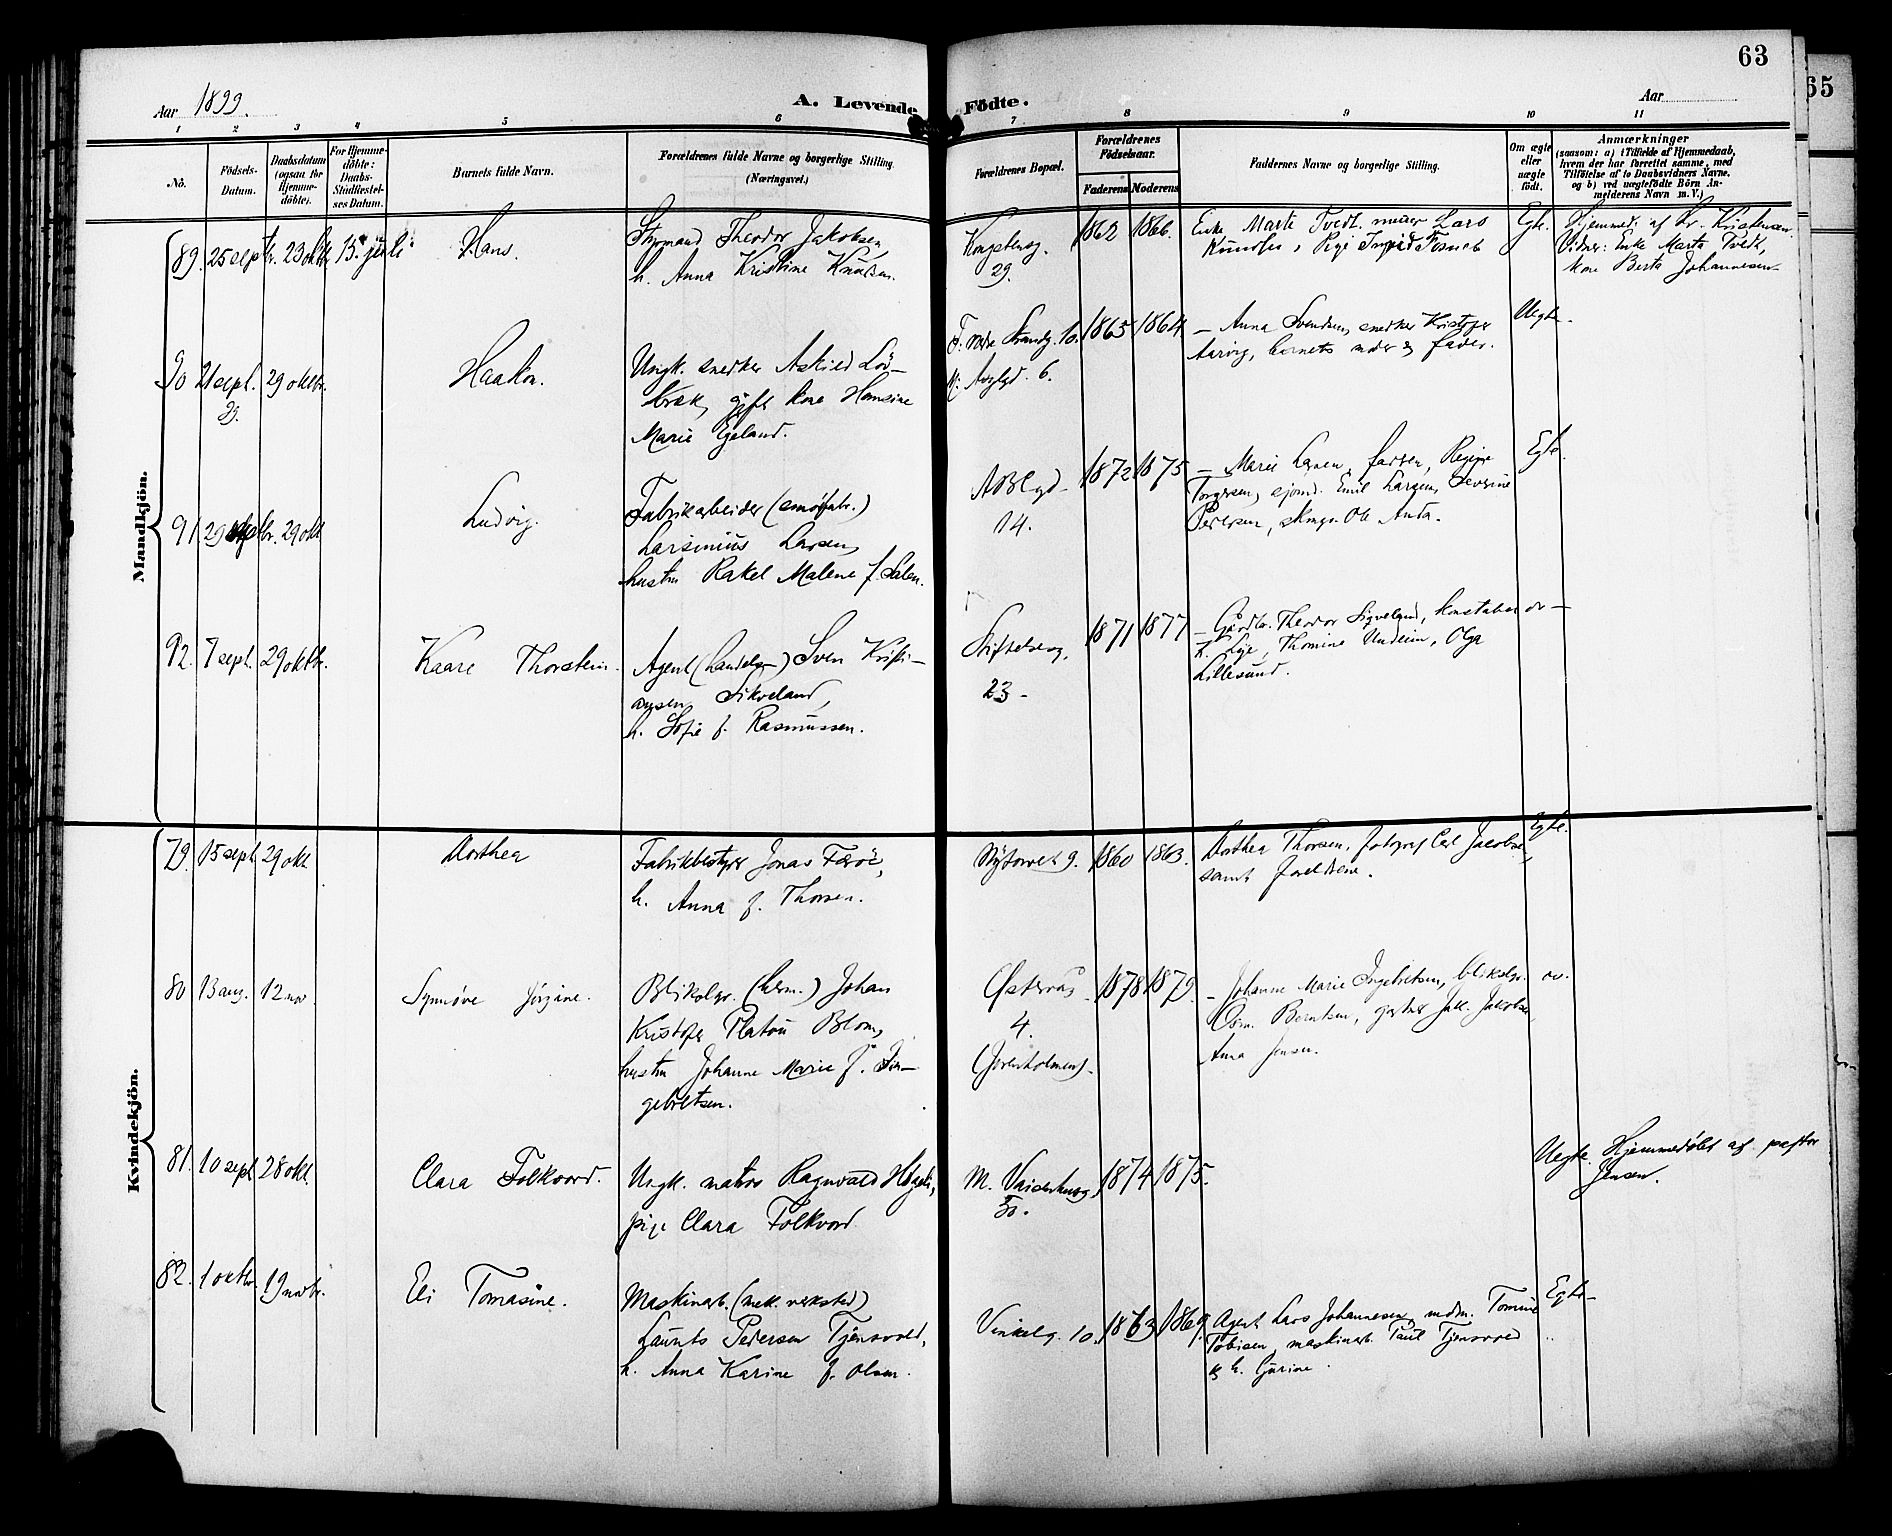 63
65
Aar 1899.
A. Levende Födte.
Aar
1 2 3 4 5 6 7 8 9 10 11
No.
Födsels-
Datum.
Daabsdatum
(ogsaa for
Hjemme-
döbte).
For Hjemme-
döbte:
Daabs-
Stadfæstel-
ses Datum.
Barnets fulde Navn.
Forældrenes fulde Navne og borgerlige Stilling.
(Næringsvei.)
Forældrenes Bopæl.
Forældrenes
Födselsaar.
Faderens Moderens
Faddernes Navne og borgerlige Stilling.
Om ægte
eller
uægte
födt.
Anmærkninger
(saasom: a) i Tilfælde af Hjemmedaab,
hvem der har forrettet samme, med
Tilföielse af to Daabsvidners Navne,
og b) ved uægtefödte Börn An-
melderens Navn m. V.)
Mandkjön.
89. 25 septr. 23 oktr. 15 juli
Hans.
Styrmand Theodor Jakobsen,
h. Anna Kristine Knudsen.
Kongsteng.
29.
1862 1866.
Enke Marte Tvedt, murer Lars
Knudsen, Pige
Egte.
Hjemmed. af Kristensen.
Vidner: Enke Marte Tvedt,
kone Berta Johannesen
90 21 sept. 29 oktbr.
Haakon.
Ungk. snedker Askild Löv-
bræk, gift kone Hansine
Marie Egeland.
F. Strandg. 10.
M. 6.
1865 1864
– Anna Svendsen, snedker Kristofer
barnets moder & fader.
Uegte.
91 29 septbr. 29 okt
Ludvig.
Fabrikarbeider
Larsinius Larsen,
hustru Rakel Malene f. Salen.
14.
1872 1875
– Marie Larsen, Regine
Torgersen, sjömd. Emil Larsen, Severine
Pedersen, Ole Anda.
Egte.
92. 7 sept. 29 oktbr.
Kaare Thorstein.
Agent (handels–) Sven Kristi-
ansen Sikveland,
h. Sofie f. Rasmussen.
Stiftelsesg.
23 –
1871 1877
– Theodor Sigveland, konstabel
Lye, Thomine Undeim, Olga
Lillesund.
do –
Kvindekjön.
79. 15 sept 29 okt
Dorthea
Fabrikbestyrer Jonas Færöe,
h. Anna f. Thorsen.
Nytorvet 9.
1860 1863.
Dorthea Thorsen, fotograf Carl Jacobsen,
samt forældrene.
Egte.
80 13 aug. 12 nov.
Synnöve Jörgine.
Blikslgr. (herm.) Johan
Kristofer Platou Blom,
hustru Johanne Marie f. In-
gebretsen.
Østervåg
4.
(Jorenholmen) –
1878 1879.
– Johanne Marie Ingebretsen, blikslgr.
Berntsen, Jak. Jakobsen,
Anna Jensen.
do.
81. 10 sept 28 okt.
Clara Folkvord.
Ungk. matros Ragnvald
pige Clara Folkvord
M.
30.
1874 1875.
Uegte.
Hjemmedöbt af pastor
Jensen.
82. 1 oktbr. 19 novbr.
Eli Tomasine.
Maskinarb. (mek. verksted)
Laurits Pedersen Tjensvold,
h. Anna Karine f. Olsen.
Vinkelg. 10.
1863 1869.
Agent Lars Johannesen, madm. Tomine
Tobisen, maskinarb. Paul Tjensvold
& h. Gurine.
Egte –